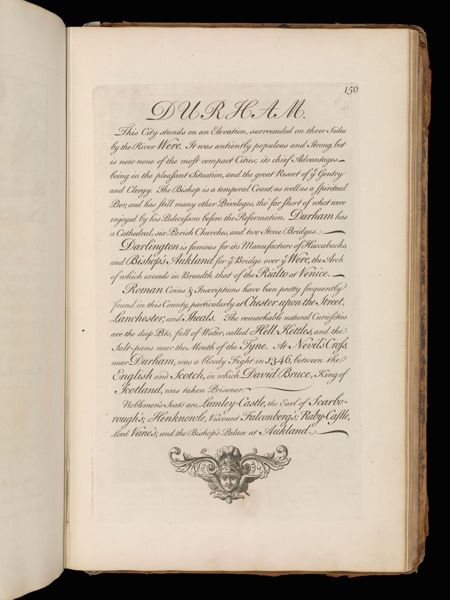 150
DURHAM.
This City stands on an Elevation, surrounded on three Sides
by the River Were. It was antiently populous and Strong, but
is now none of the most compact Cities; its chief Advantages
being in the pleasant Situation, and the great Resort of yͤ Gentry
and Clergy. The Bishop is a temporal Count, as well as a Spiritual
Peer, and has still many other Privileges, tho' far short of what were
enjoyed by his Predecessors before the Reformation. Durham has
a Cathedral, six Parish Churches, and two Stone Bridges.
Darlington is famous for its Manufacture of Huccabacks,
and Bishop's Aukland for yͤ Bridge over yͤ Were, the Arch
of which exceeds in Breadth that of the Rialto at Venice.
Roman Coins & Inscriptions have been pretty frequently
found in this County, particularly at Chester upon the Street,
Lanchester, and Sheals. The remarkable natural Curiosities
are the deep Pits, full of Water, called Hell Kettles, and the
Salt-pans near the Mouth of the Tyne. At Nevil's Cross,
near Durham, was a bloody Fight in 1346, between the
English and Scotch, in which David Bruce, King of
Scotland, was taken Prisoner.
Noblemen's Seats are, Lumley-Castle, the Earl of Scarbo-
rough's; Henknowle, Viscount Falconberg's; Raby-Castle,
Lord Vane's; and the Bishop's Palace at Aukland.